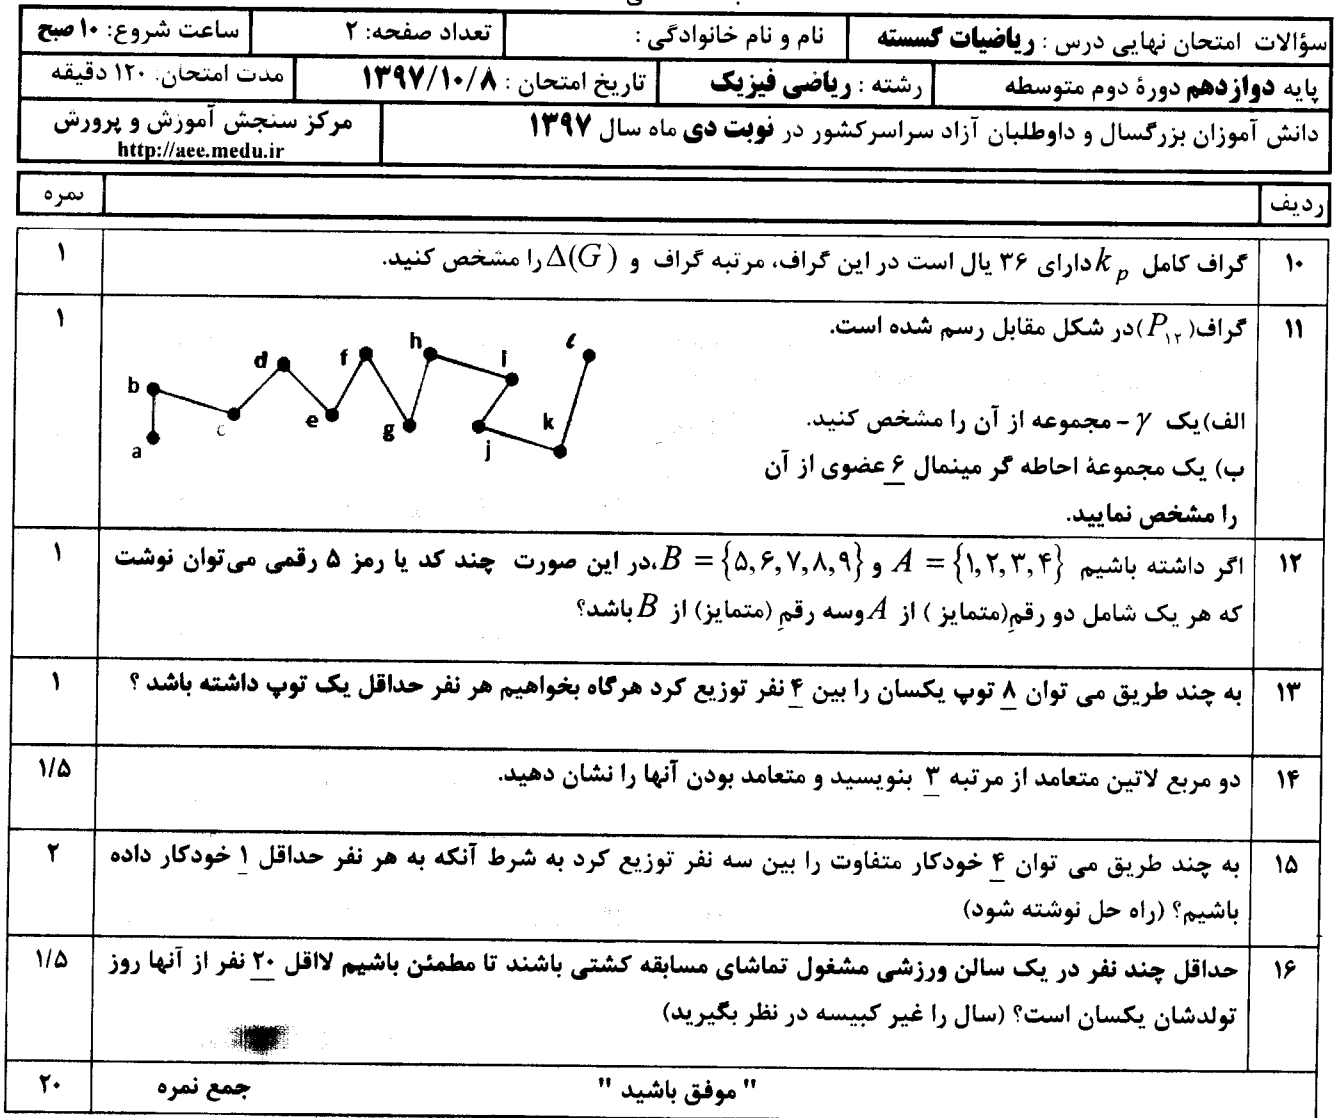 سؤالات امتحان نهایی درس : ریاضیات گسسته نام و نام خانوادگی : تعداد صفحه: ۲ ساعت شروع: ۱۰ صبح
پایه دوازدهم دورهٔ دوم متوسطه رشته : ریاضی فیزیک تاریخ امتحان : ۱۳۹۷/۱۰/۸ مدت امتحان: ۱۲۰ دقیقه
دانش آموزان بزرگسال و داوطلبان آزاد سراسرکشور در نوبت دی ماه سال ۱۳۹۷ مرکز سنجش آموزش و پرورش
http://aee.medu.ir
ردیف نمره
۱۰ گراف کامل k_p دارای ۳۶ یال است در این گراف، مرتبه گراف و Δ(G) را مشخص کنید. ۱
۱۱ گراف(P_۱۲)در شکل مقابل رسم شده است. ۱
a b c d e f g h i j k ℓ
الف)یک γ - مجموعه از آن را مشخص کنید.
ب) یک مجموعهٔ احاطه گر مینمال ۶ عضوی از آن
را مشخص نمایید.
۱۲ اگر داشته باشیم A = {۱,۲,۳,۴} و B = {۵,۶,۷,۸,۹}،در این صورت چند کد یا رمز ۵ رقمی می‌توان نوشت ۱
که هر یک شامل دو رقمِ(متمایز ) از A وسه رقمِ (متمایز) از B باشد؟
۱۳ به چند طریق می توان ۸ توپ یکسان را بین ۴ نفر توزیع کرد هرگاه بخواهیم هر نفر حداقل یک توپ داشته باشد ؟ ۱
۱۴ دو مربع لاتین متعامد از مرتبه ۳ بنویسید و متعامد بودن آنها را نشان دهید. ۱/۵
۱۵ به چند طریق می توان ۴ خودکار متفاوت را بین سه نفر توزیع کرد به شرط آنکه به هر نفر حداقل ۱ خودکار داده ۲
باشیم؟ (راه حل نوشته شود)
۱۶ حداقل چند نفر در یک سالن ورزشی مشغول تماشای مسابقه کشتی باشند تا مطمئن باشیم لااقل ۲۰ نفر از آنها روز ۱/۵
تولدشان یکسان است؟ (سال را غیر کبیسه در نظر بگیرید)
" موفق باشید " جمع نمره ۲۰